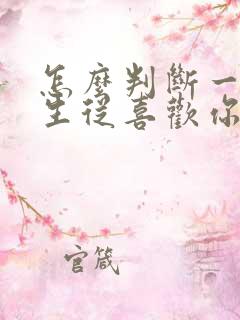 怎麼判斷一
生從喜歡你
官箴